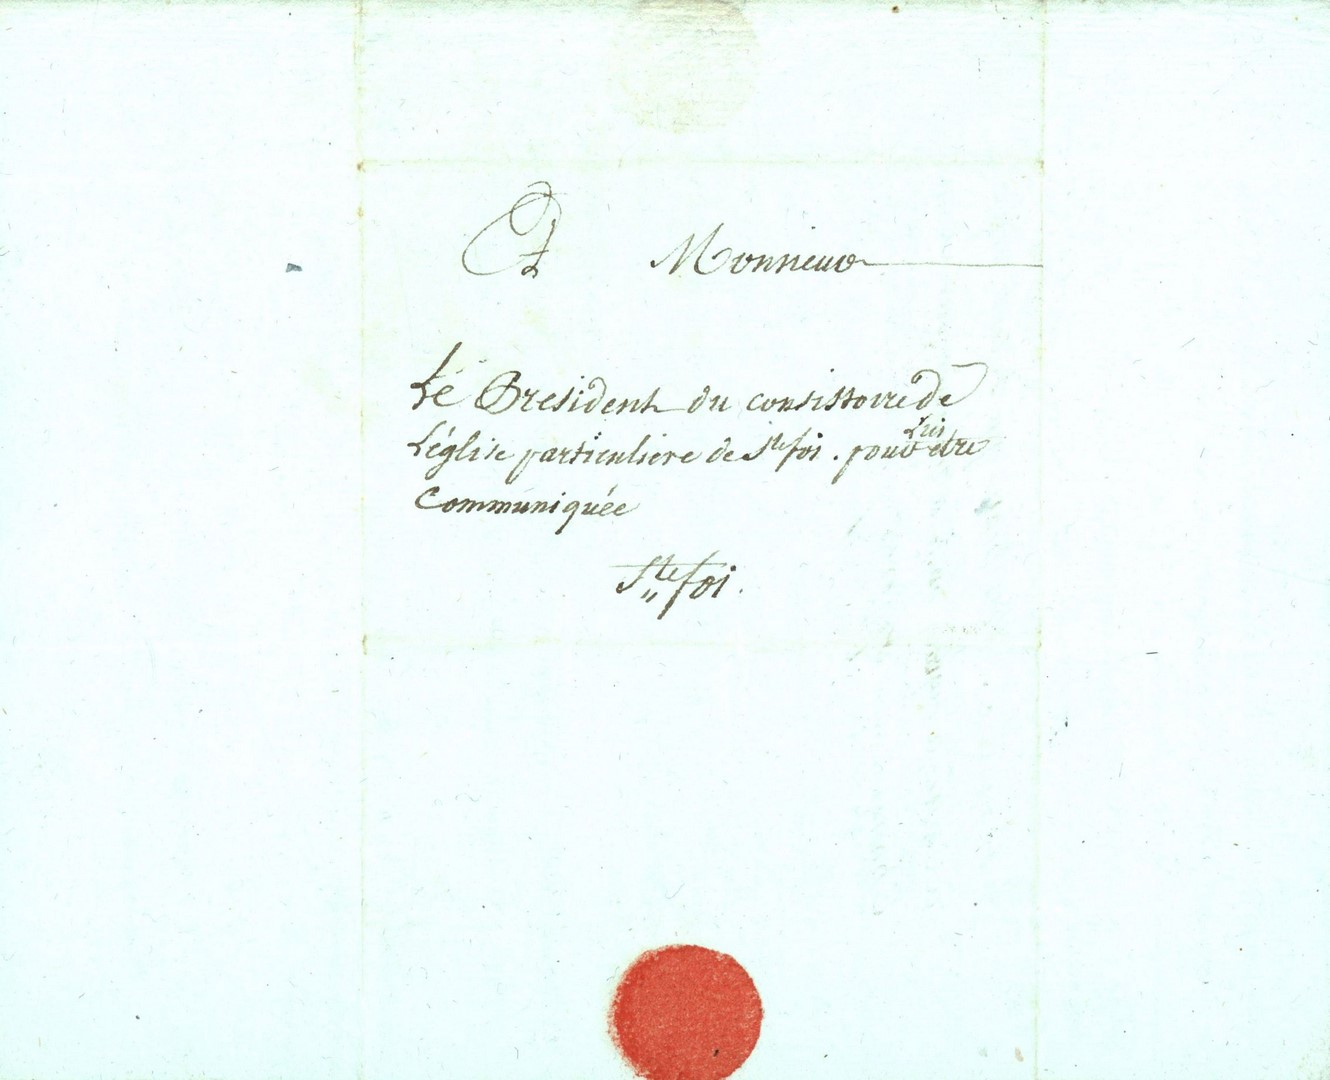 A Monsieur
Le President du consistoire de
L'église particuliere de Ste foi . pour Lui être
Communiquée
Ste foi.